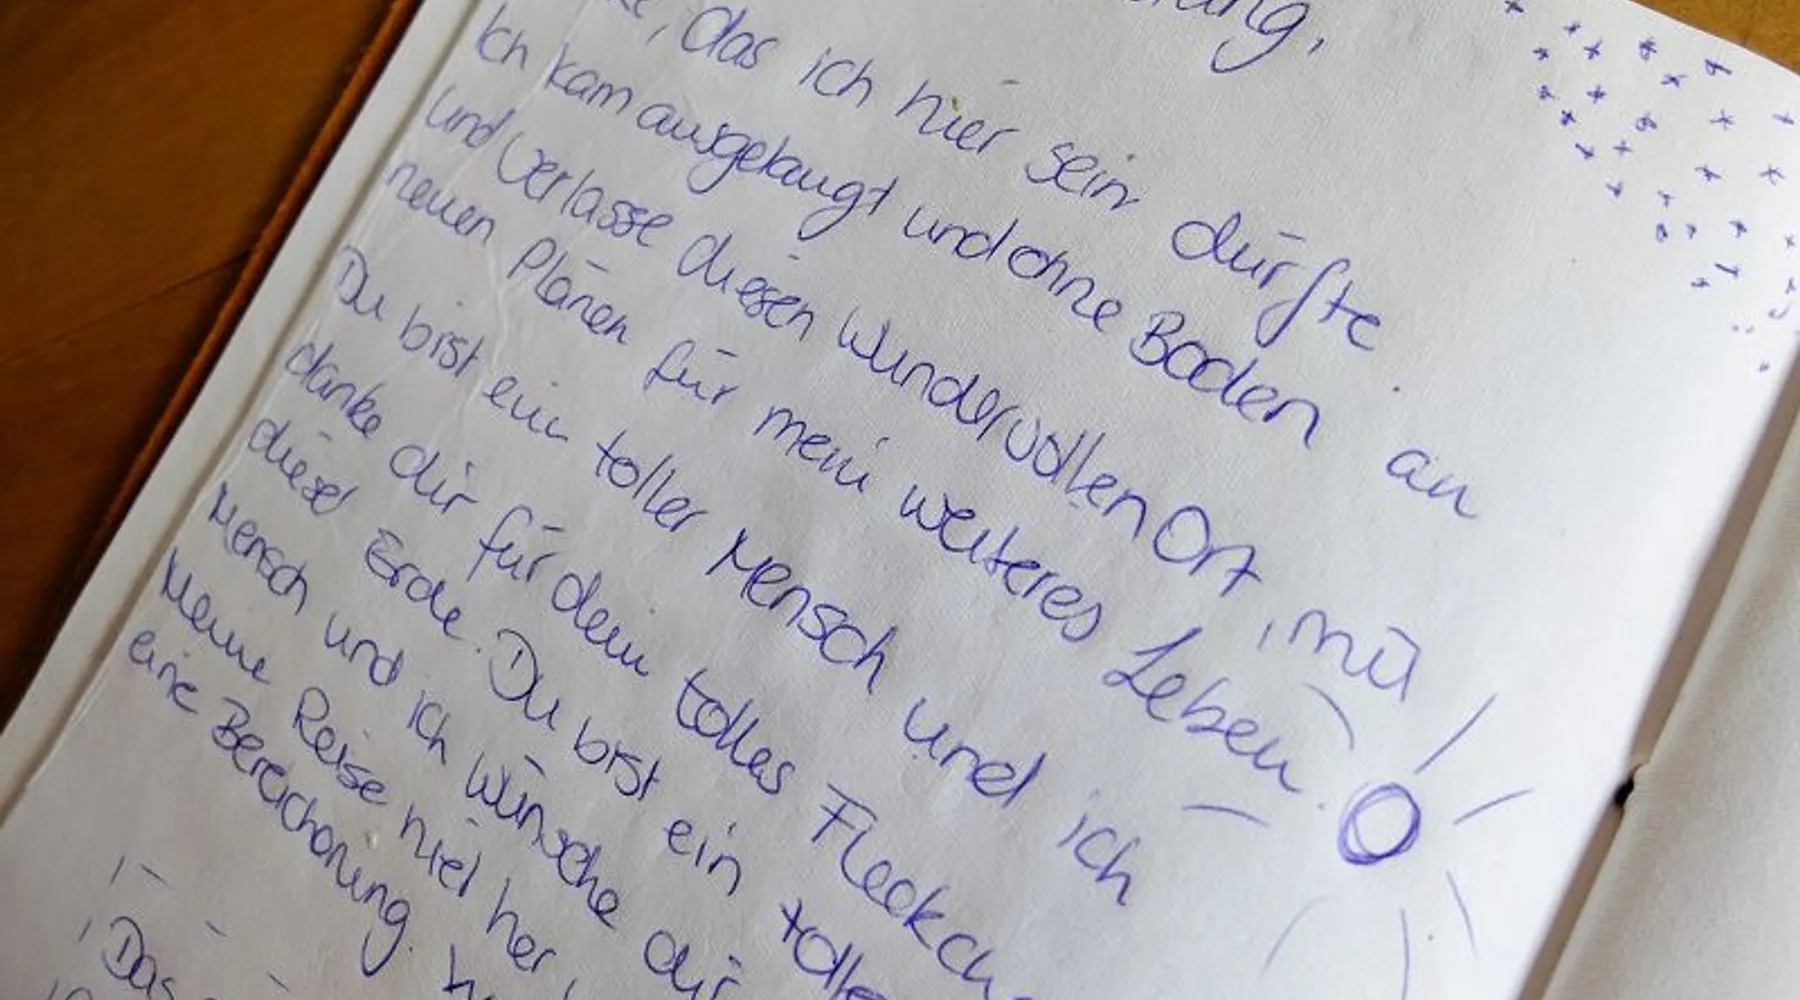 rung,
ke, das ich hier sein durfte.
Ich kam ausgelaugt und ohne Boden an
und verlasse diesen wundervollen Ort, mit
neuen Plänen für mein weiteres Leben.
Du bist ein toller Mensch und ich
danke dir für dein tolles Fleckch
dieser Erde. Du bist ein toller
Mensch und ich wünsche dir
Meine Reise hier her
eine Bereicherung.
Das